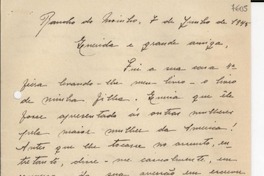 7605
Rancho do Moinho, 7 de Junho de 1948
Querida e grande amiga,
Fui a sua casa 6ª
feira levando-lhe meu livro - o livro
de minha filha. Queria que ele
fosse apresentado às outras mulheres
pela maior mulher da America!
Antes que lhe tocasse no assunto, en-
tretanto, disse-me
de sua aversão em